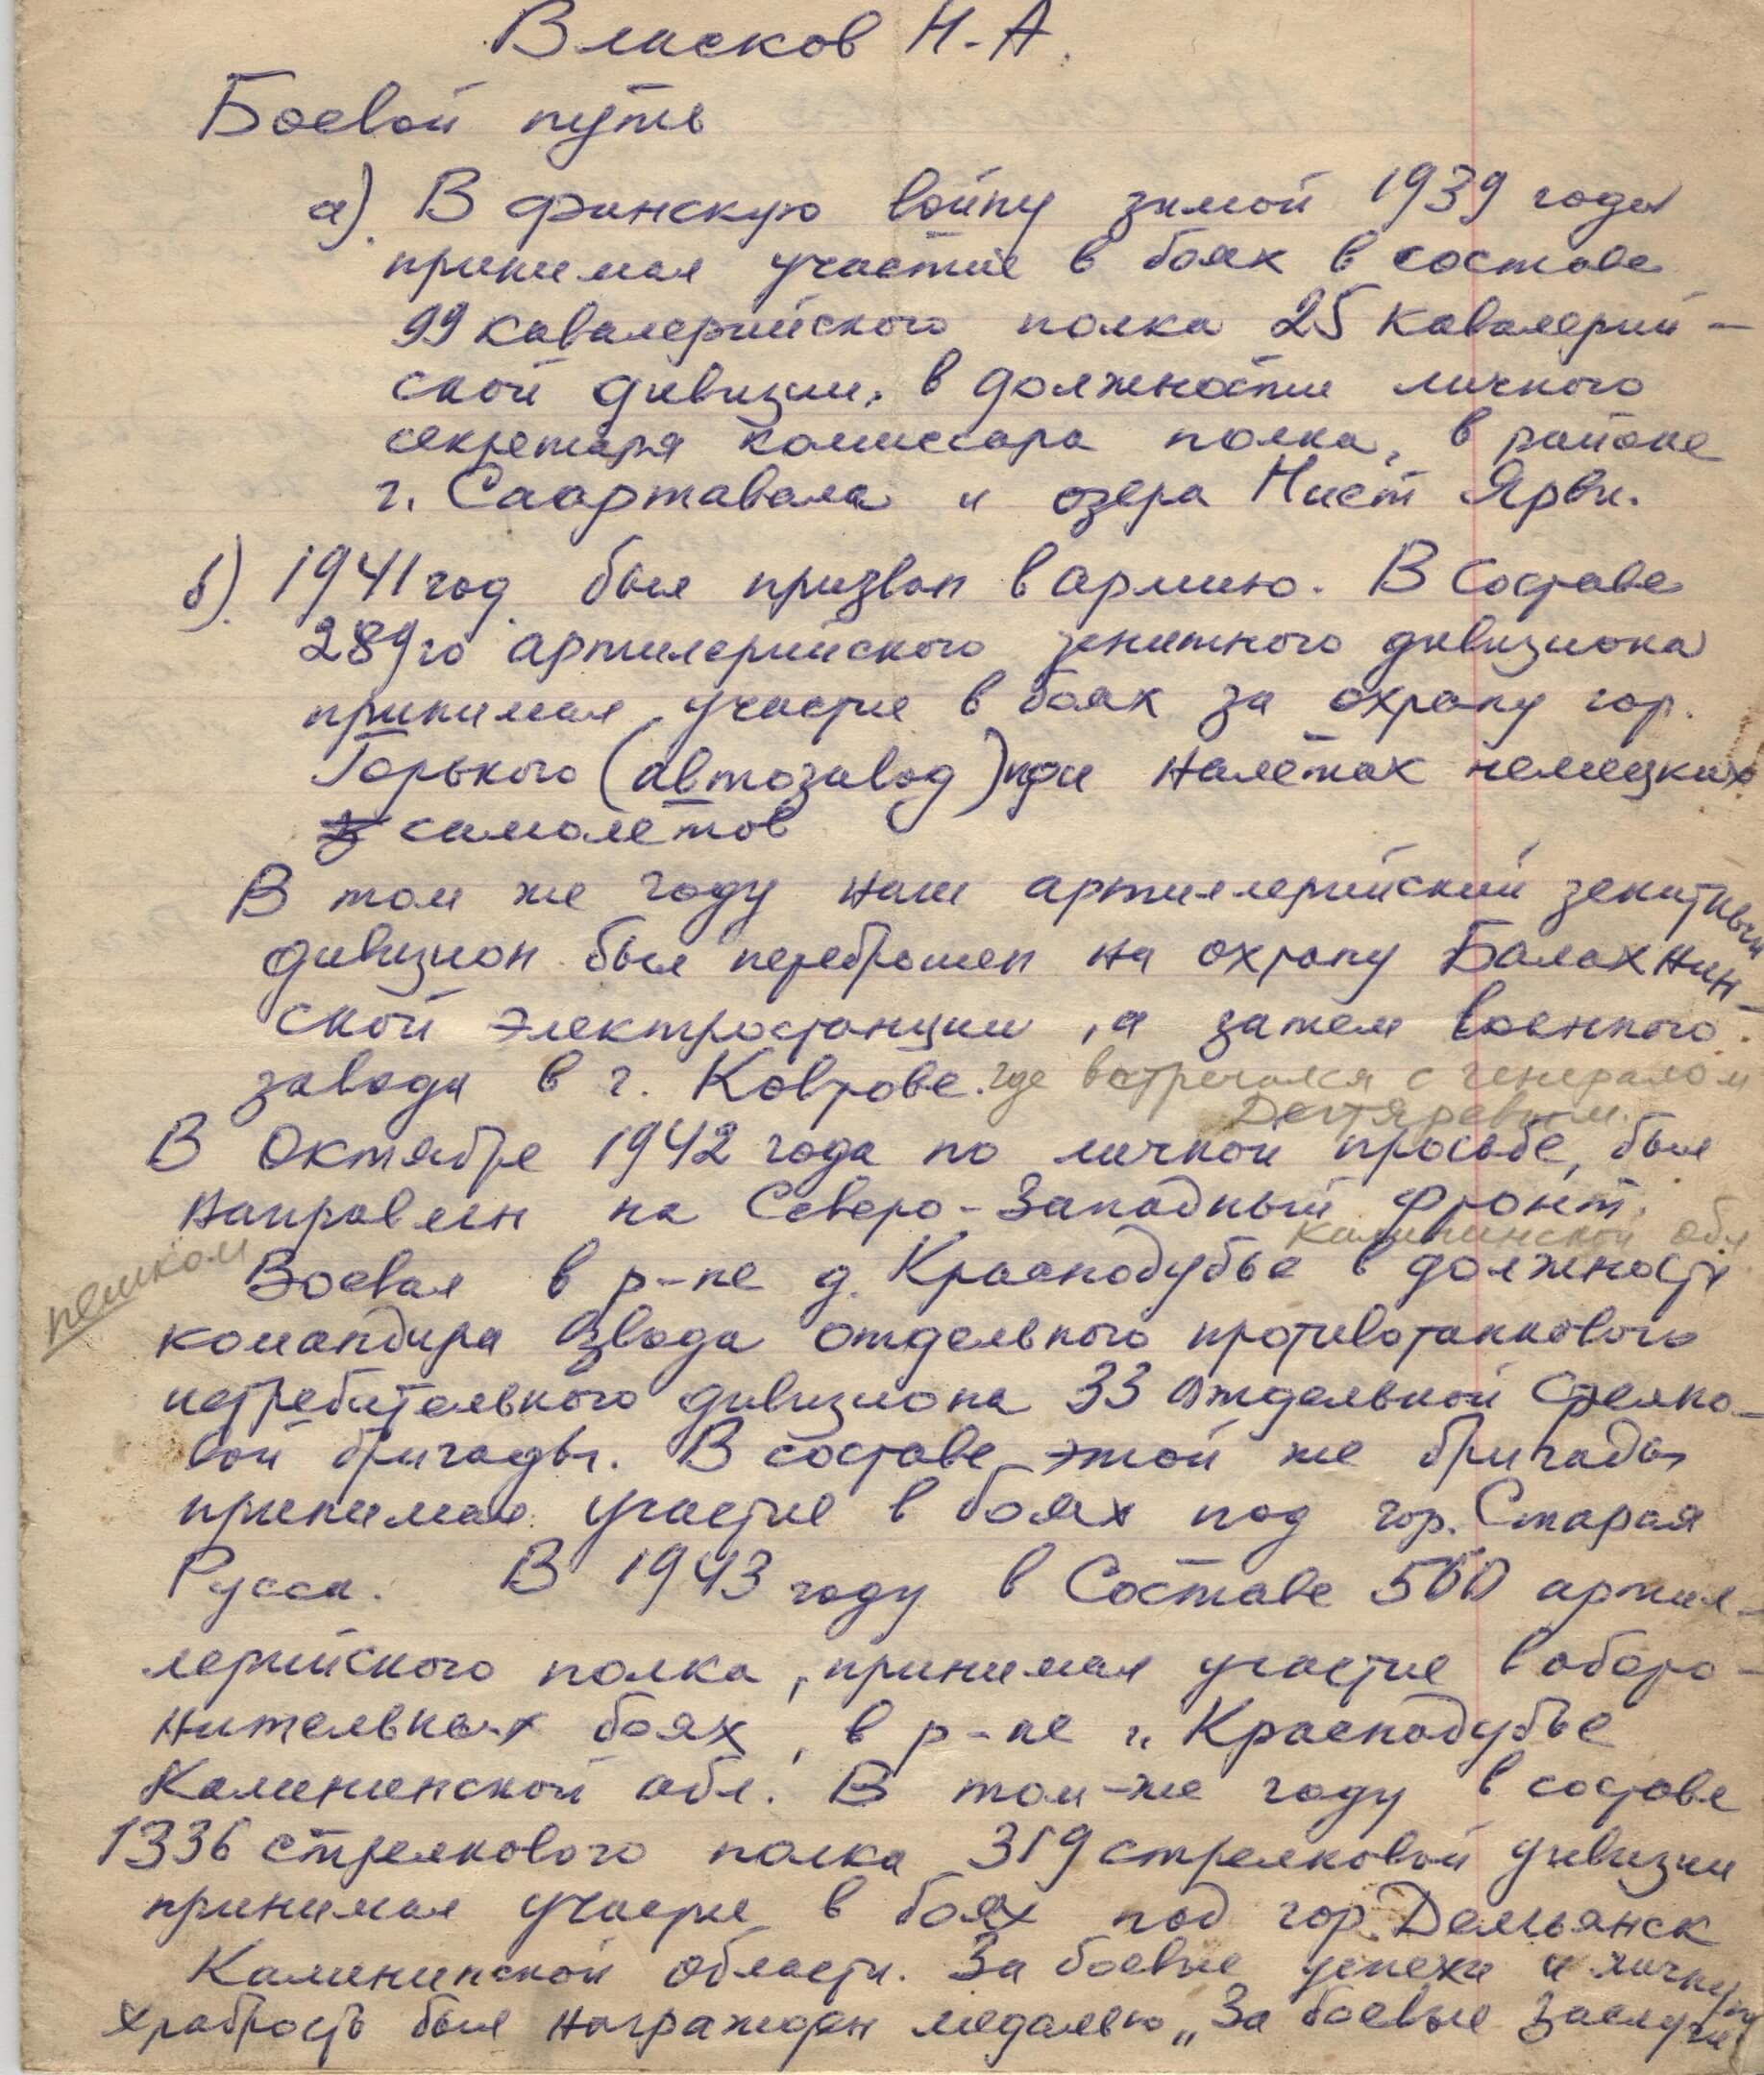 Власков Н.А.
Боевой путь
а). В финскую войну зимой 1939 года
принимал участие в боях в составе
99 кавалерийского полка 25 кавалерий-
ской дивизии, в должности личного
секретаря комиссара полка, в районе
г. Саартавала и озера Ниет Ярви.
б). 1941 год был призван в армию. В составе
289го артилерийского зенитного дивизиона
принимал участие в боях за охрану гор.
Горького (автозавод) при налётах немецких
самолётов
В том же году наш артиллерийский зенитный
дивизион был переброшен на охрану Балахнин-
ской электростанции, а затем военного
завода в г. Коврове. где встречался с генералом
Дегтяревым.
В Октябре 1942 года по личной просьбе, был
направлен на Северо-Западный фронт.
Калининской обл
пешком
Воевал в р-не д. Краснодубье в должности
командира взвода отдельного противотанкового
истребительного дивизиона 33 отдельной стрелко-
вой бригады. В составе этой же бригады
принимал участие в боях под гор. Старая
Русса. В 1943 году в Составе 500 артил-
лерийского полка, принимал участие в оборо-
нительных боях, в р-не "Краснодубье
Калининской обл. В том-же году в составе
1336 стрелкового полка 319 стрелковой дивизии
принимал участие в боях под гор. Демьянск
Калининской области. За боевые успехи и личную
храбрость был награжден медалью "За боевые заслуги